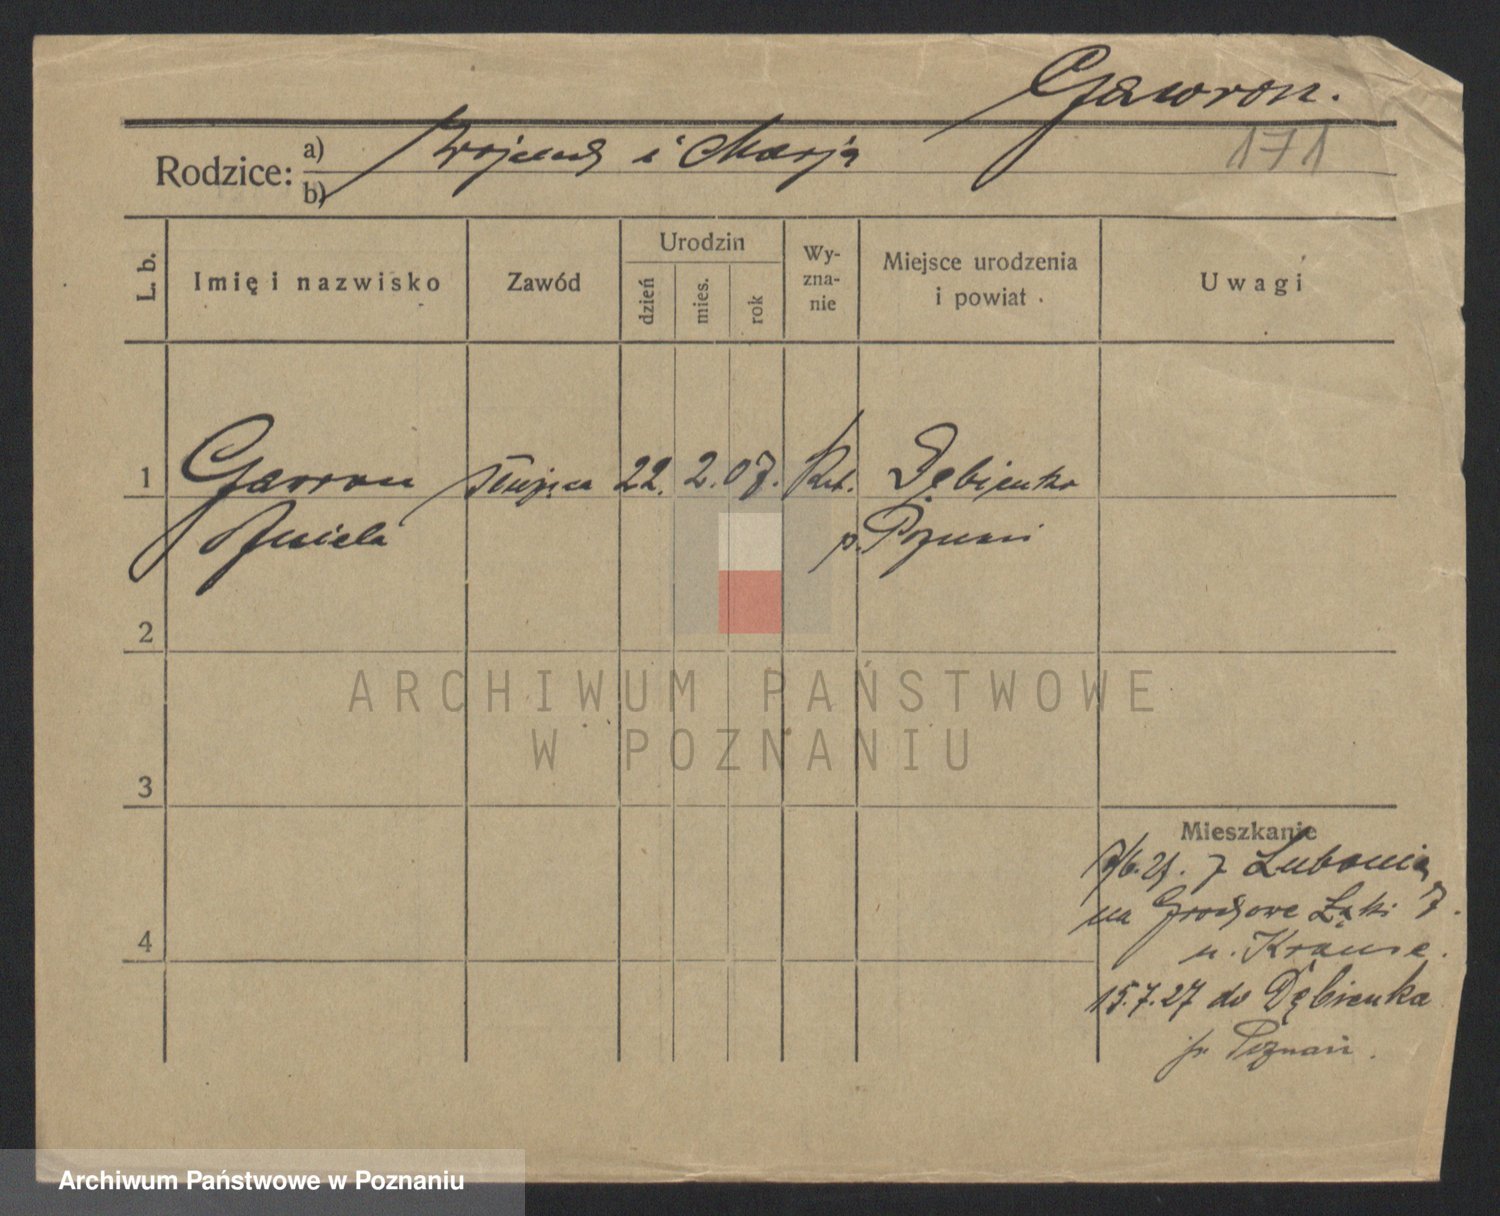 Gawron.
171
Rodzice: a) Wojciech i Marja
b)
L. b.
Imię i nazwisko
Zawód
Urodzin
dzień
mies.
rok
Wy-
zna-
nie
Miejsce urodzenia
i powiat
Uwagi
1
Gawron służąca 22. 2. 07. Kat. Dębienko
Aniela p. Poznań
2
3
4
ARCHIWUM PAŃSTWOWE
W POZNANIU
Mieszkanie
z Lubonia
na Grodzowe Łąki 7.
u. Krause.
15.7.27 do Dębienka
p. Poznań.
Archiwum Państwowe w Poznaniu